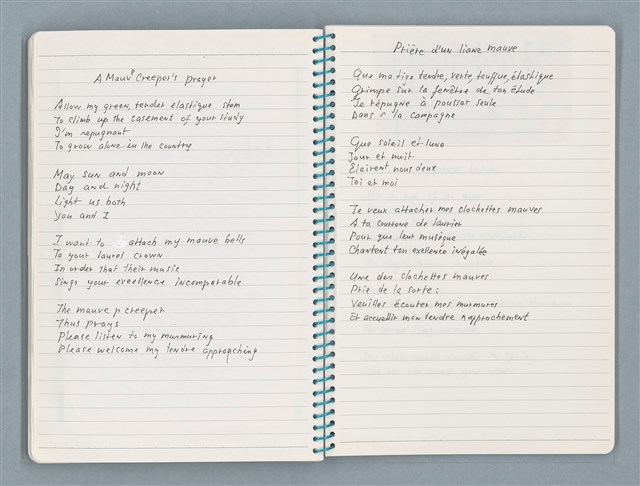 A Mauve Creeper's prayor
Allow my green, tender elastique stem
To climb up the casement of your study
I'm repugnant
To grow alone in the country
May sun and moon
Day and night
Light us both
You and I
I want to attach my mauve bells
To your laurel crown
In order that their music
Sings your execllence incomparable
The mauve p creeper
Thus prays
Please listen to my murmuring
Please welcome my tendre approaching
Prière d'un liane mauve
Que ma tige tendre, verte, touffue, élastique
Grimpe sur la fenêtre de ton étude
Je répugne à pousser seule
Dans la campagne
Que soleil et lune
Jour et nuit
Elairent nous deux
Toi et moi
Je veux attacher mes clochettes mauves
A ta couronne de laurier
Pour que leur musique
Chantent ton exellence inégalée
Une des clochettes mauves
Prie de la sorte :
Veuilles écouter mes murmures
Et accueillir mon tendre rapprochement